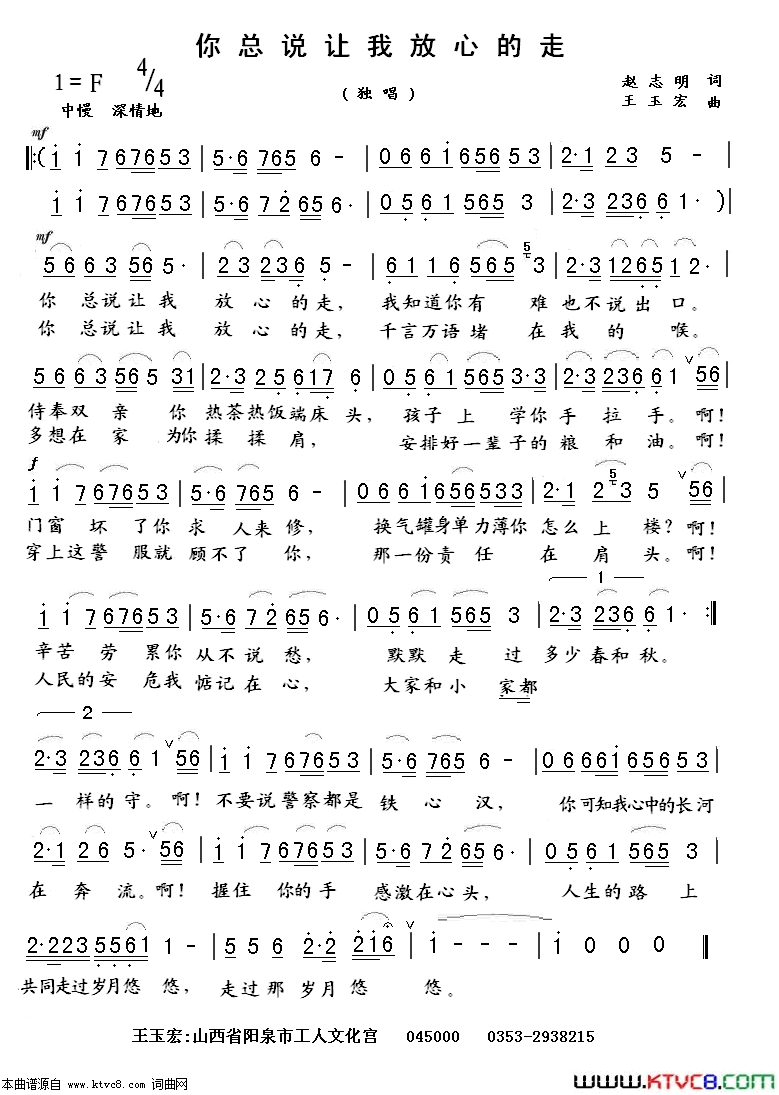 你总说让我放心的走
1=F 4/4
（独唱）
赵志明 词
中慢 深情地
王玉宏 曲
mf
‖:( i i 7 6 7 6 5 3 | 5·6 7 6 5 6 - | 0 6 6 i 6 5 6 0 5 3 | 2·2 2 3 5 - |
i i 7 6 7 6 5 3 | 5·6 7 2 6 5 6· | 0 5 6 1 5 6 5 3 | 2·3 2 3 6 6 1· )|
mf
5 6 6 3 5 6 5· | 2 3 2 3 6 5 - | 6 1 1 6 5 6 5 5 3 | 2·3 1 2 6 5 1 2· |
你 总说让我 放心的走， 我知道你有 难也不说出口。
你 总说让我 放心的走， 千言万语堵 在我的喉。
5 6 6 3 5 6 5 3 1 | 2·3 2 5 6 1 7 6 | 0 5 6 1 5 6 5 3·3 | 2·2 2 3 6 6 1 V 5 6
侍奉双亲 你热茶热饭端床头， 孩子上学你手拉手。啊！
多想在家 为你揉揉肩， 安排好一辈子的粮和油。啊！
f
i i 7 6 7 6 5 3 | 5·6 7 6 5 6 - | 0 6 6 i 6 5 6 5 3 3 | 2·1 2 5 3 5 V 5 6 |
门窗坏了你求人来修， 换气罐身单力薄你怎么上楼？啊！
穿上这警服就顾不了你， 那一份责任在肩头。啊！
1
i i 7 6 7 6 5 3 | 5·6 7 2 6 5 6· | 0 5 6 1 5 6 5 3 | 2·3 2 3 6 6 1· :‖
辛苦劳累你从不说愁， 默默走过多少春和秋。
人民的安危我惦记在心， 大家和小家都
2
2·3 2 3 6 6 1 V 5 6 | i i 7 6 7 6 5 3 | 5·6 7 6 5 6 - | 0 6 6 6 i 6 5 6 5 3 |
一样的守。啊！不要说警察都是铁心汉， 你可知我心中的长河
2·1 2 6 5· V 5 6 | i i 7 6 7 6 5 3 | 5·6 7 2 6 5 6· | 0 5 6 1 5 6 5 3 |
在奔流。啊！握住你的手感激在心头， 人生的路上
2·2 2 3 5 5 6 1 1 - | 5 5 6 2·2 2 i 6 V | i - - - | i 0 0 0 ‖
共同走过岁月悠悠， 走过那岁月悠悠。
王玉宏:山西省阳泉市工人文化宫 045000 0353-2938215
本曲谱源自 www.ktvc8.com 词曲网
WWW.KTVC8.COM